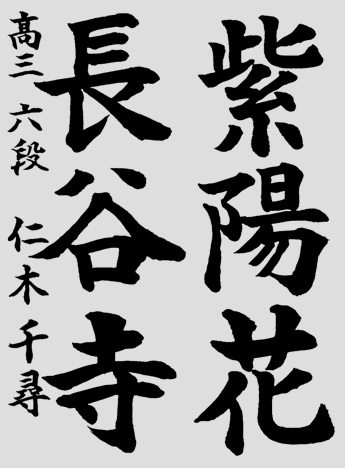 紫陽花
長谷寺
高三 六段 仁木千尋